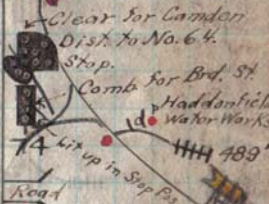 Clear for Camden
Dist. to No. 64.
Stop.
Comb for Brd. St.
Haddonfield
Water Works
d
Lit up in Stop Pos
4
489'
Road